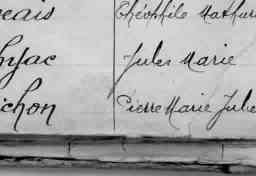 çais Théophile Mathur
hyac Jules Marie
ichon Pierre Marie Julie